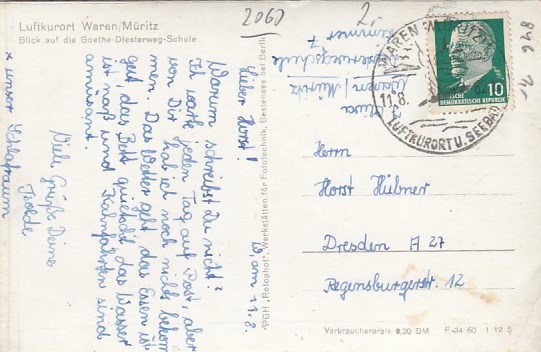 Luftkurort Waren/Müritz
Blick auf die Goethe-Diesterweg-Schule
2060
2.-
W, am 11.8.
Lieber Horst!
Warum schreibst Du nicht?
Ich warte jeden Tag auf Post, aber
von Dir hab ich noch nichts bekom-
men. Das Wetter geht, das Essen ist
gut, das Bett quietscht, das Wasser
ist naß und Kahnfahrten sind
amüsant.
Viele Grüße Deine
Isolde
x unser Schlafraum
PGH „Rotophot“, Werkstätten für Fototechnik, Bestensee bei Berlin
Waren / Müritz
Diesterwegschule
Zimmer 7
WAREN (MÜRITZ)
11.8.
LUFTKURORT U. SEEBAD
10
DEUTSCHE
DEMOKRATISCHE REPUBLIK
846
Herrn
Horst Hübner
Dresden A 27
Regensburgerstr. 12
Verbraucherpreis 0,20 DM